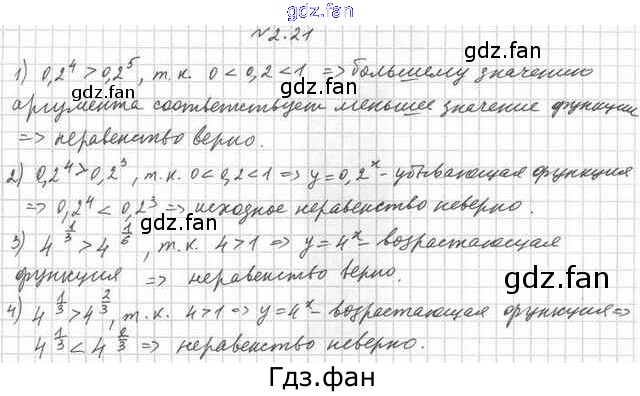 gdz.fan
№2.21
gdz.fan
gdz.fan
1) 0,2^4 > 0,2^5, т.к. 0 < 0,2 < 1 => большему значению
аргумента соответствует меньшее значение функции
=> неравенство верно.
gdz.fan
gdz.fan
2) 0,2^4 > 0,2^3, т.к. 0 < 0,2 < 1 => y = 0,2^x - убывающая функция
=> 0,2^4 < 0,2^3 => исходное неравенство неверно.
gdz.fan
3) 4^(1/3) > 4^(1/6), т.к. 4 > 1 => y = 4^x - возрастающая
функция => неравенство верно.
gdz.fan
gdz.fan
4) 4^(1/3) > 4^(2/3), т.к. 4 > 1 => y = 4^x - возрастающая функция =>
4^(1/3) < 4^(2/3) => неравенство неверно.
gdz.fan
Гдз.фан